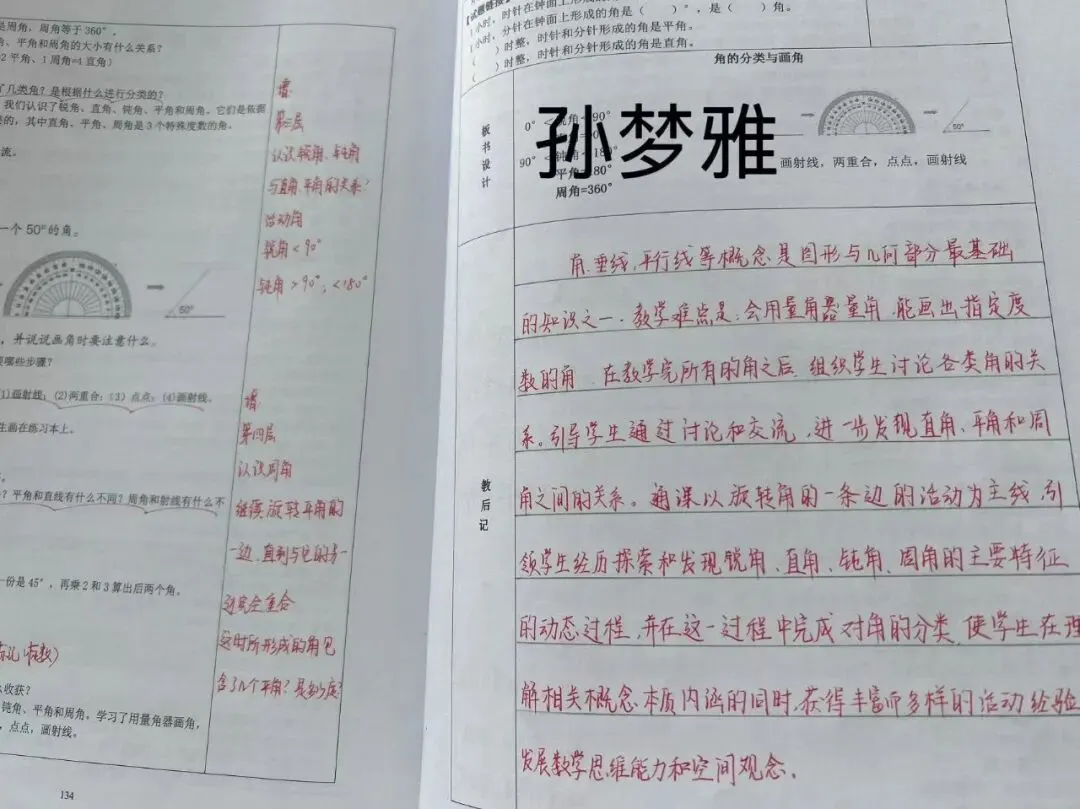 是周角，周角等于360°。
角、平角和周角的大小有什么关系？
2平角、1周角=4直角）
了几类角？是根据什么进行分类的？
我们认识了锐角、直角、钝角、平角和周角。它们是依据
类的，其中直角、平角、周角是3个特殊度数的角。
流。
一个50°的角。
50°
，并说说画角时要注意什么。
要哪些步骤？
(1)画射线；(2)两重合；(3)点点；(4)画射线。
生画在练习本上。
？平角和直线有什么不同？周角和射线有什么不
一份是45°，再乘2和3算出后两个角。
么收获？
钝角、平角和周角，学习了用量角器画角，
，点点，画射线。
134
增:
第二层
认识锐角、钝角
与直角、平角的关系?
活动角
锐角<90°
钝角>90°,<180°
增:
第四层
认识周角
继续旋转平角的
一边、直到与它的另一
边完全重合
这时所形成的角包
含了几个平角?是多少度?
小时，时针在钟面上形成的角是（ ）°，是（ ）角。
小时，分针在钟面上形成的角是平角。
（ ）时整，时针和分针形成的角是平角。
（ ）时整，时针和分针形成的角是直角。
板书设计
角的分类与画角
孙梦雅
0°
90°
50°
画射线，两重合，点点，画射线
平角=180°
周角=360°
教后记
角、垂线、平行线等概念是图形与几何部分最基础
的知识之一．教学难点是:会用量角器量角,能画出指定度
数的角．在教学完所有的角之后,组织学生讨论各类角的关
系。引导学生通过讨论和交流,进一步发现直角、平角和周
角之间的关系。通课以旋转角的一条边的活动为主线,引
领学生经历探索和发现锐角、直角、钝角、周角的主要特征
的动态过程,并在这一过程中完成对角的分类,使学生在理
解相关概念本质内涵的同时,获得丰富而多样的活动经验
发展数学思维能力和空间观念。